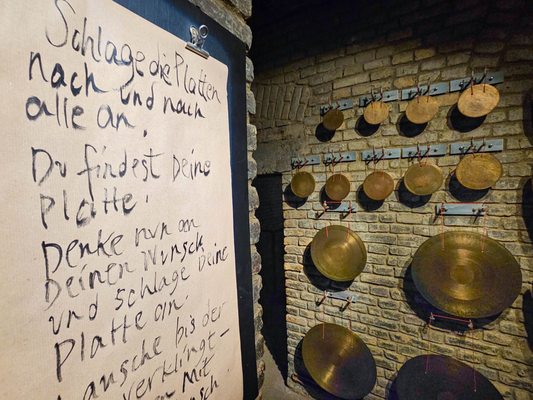 Schlage die Platten
nach und nach
alle an.
Du findest Deine
Platte!
Denke nun an
Deinen Wunsch
und schlage Deine
Platte an.
Lausche bis der
verklingt
Mit